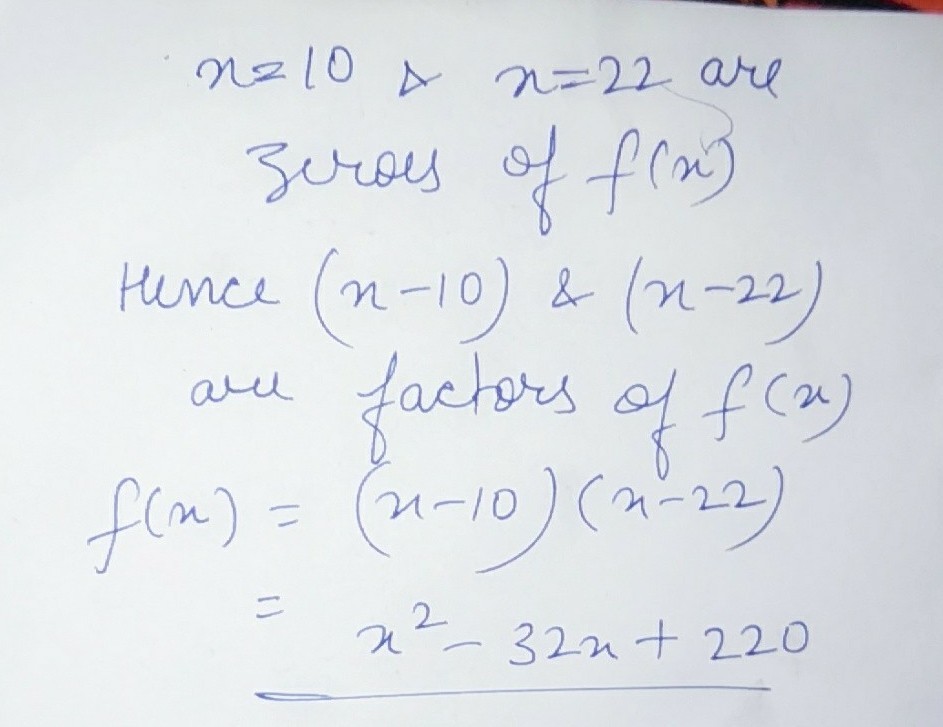 x=10 & x=22 are
zeroes of f(x)
Hence (x-10) & (x-22)
are factors of f(x)
f(x) = (x-10)(x-22)
= x² - 32x + 220